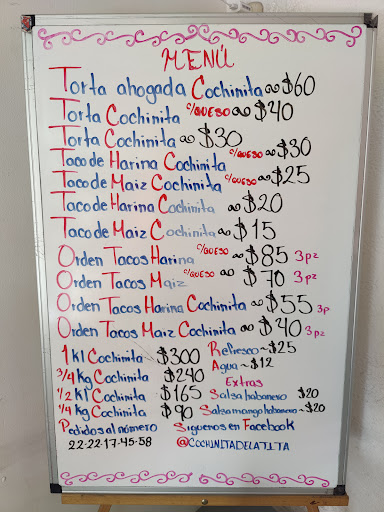 MENÚ
Torta ahogada Cochinita $60
Torta Cochinita c/QUESO $40
Torta Cochinita $30
Taco de Harina Cochinita c/QUESO $30
Taco de Maiz Cochinita c/QUESO $25
Taco de Harina Cochinita $20
Taco de Maiz Cochinita $15
Orden Tacos Harina c/QUESO $85 3pz
Orden Tacos Maiz c/QUESO $70 3pz
Orden Tacos Harina Cochinita $55 3p
Orden Tacos Maiz Cochinita $40 3p
1 kl Cochinita $300 Refresco ~ $25
3/4 kg Cochinita $240 Agua ~ $12
Extras
1/2 kl Cochinita $165 Salsa habanero $20
1/4 kg Cochinita $90 Salsa mango habanero ~ $20
Pedidos al número Siguenos en Facebook
22-22-17-45-58 @COCHINITADELATITA